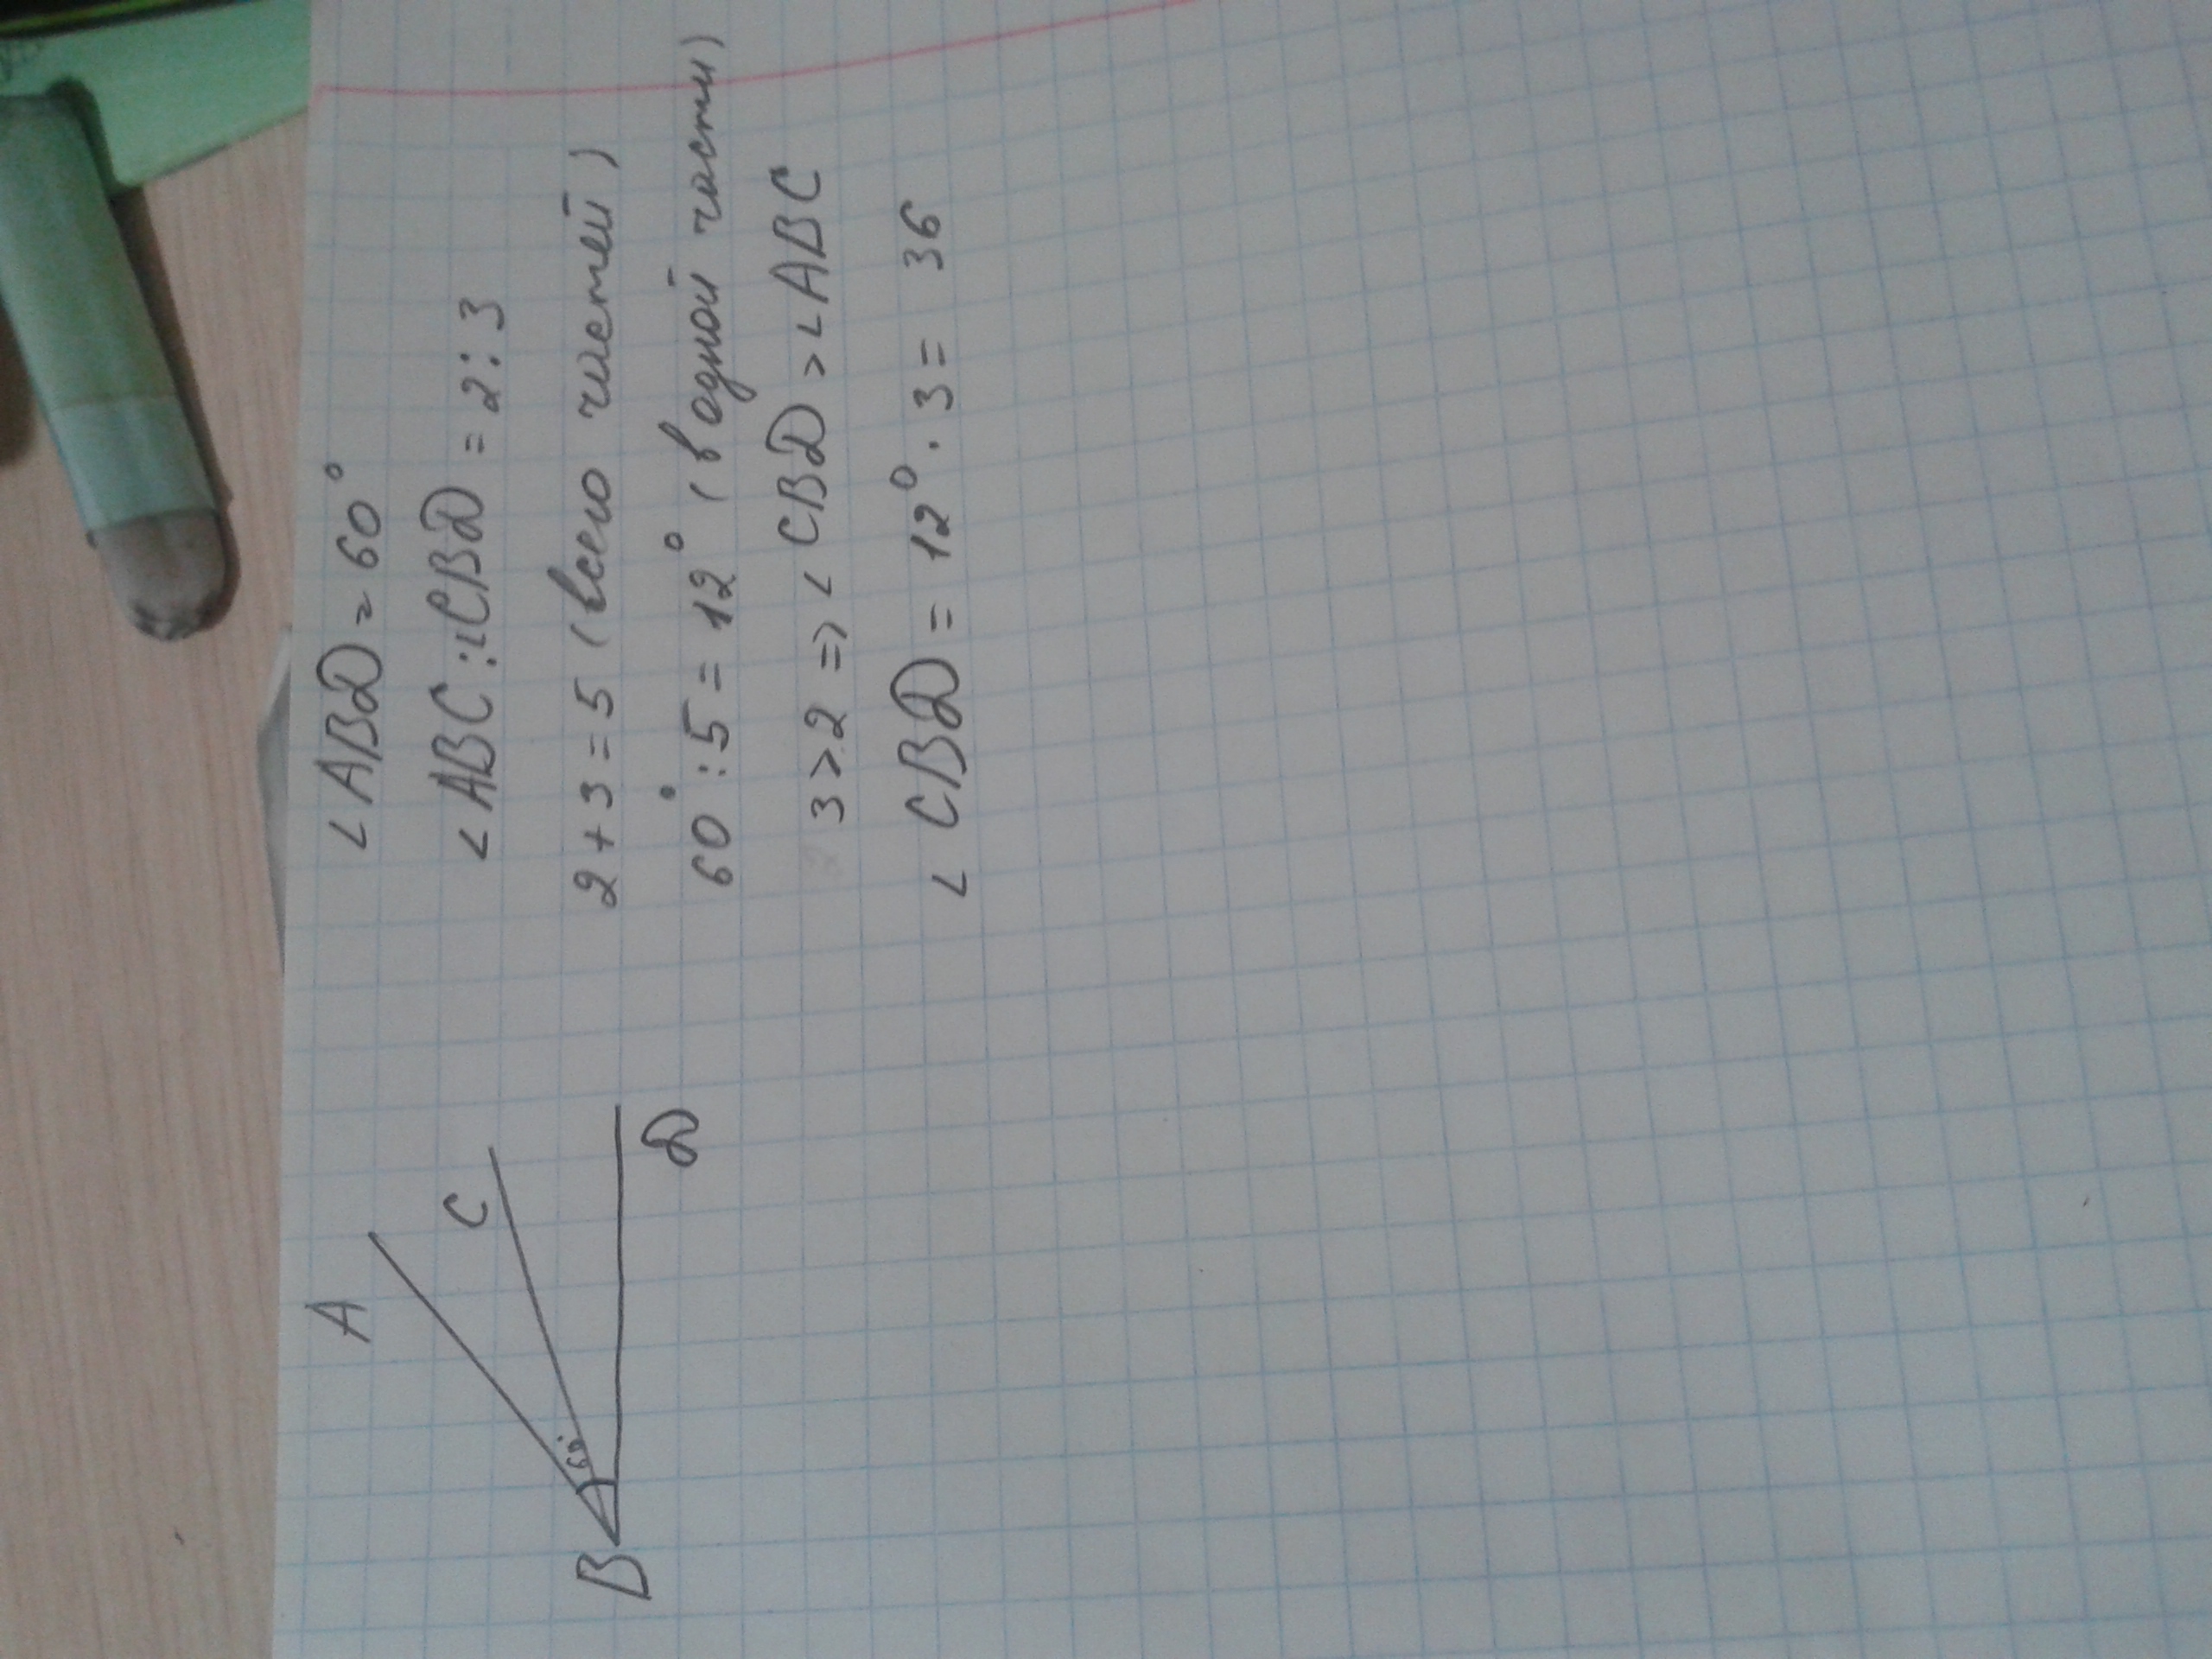 A
C
B
60°
D
∠ABD = 60°
∠ABC : ∠CBD = 2 : 3
2 + 3 = 5 (всего частей)
60° : 5 = 12° (в одной части)
3 > 2 => ∠CBD > ∠ABC
∠CBD = 12° · 3 = 36